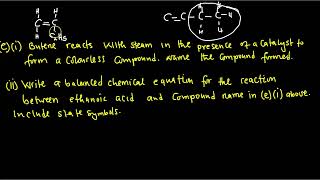 C=C
C2H5
C=C-C-C-H
(c)(i) Butene reacts with steam in the presence of a Catalyst to
form a Colourless Compound. Name the Compound formed.
(ii) Write a balanced chemical equation for the reaction
between ethanoic acid and Compound name in (e)(i) above.
Include state symbols.